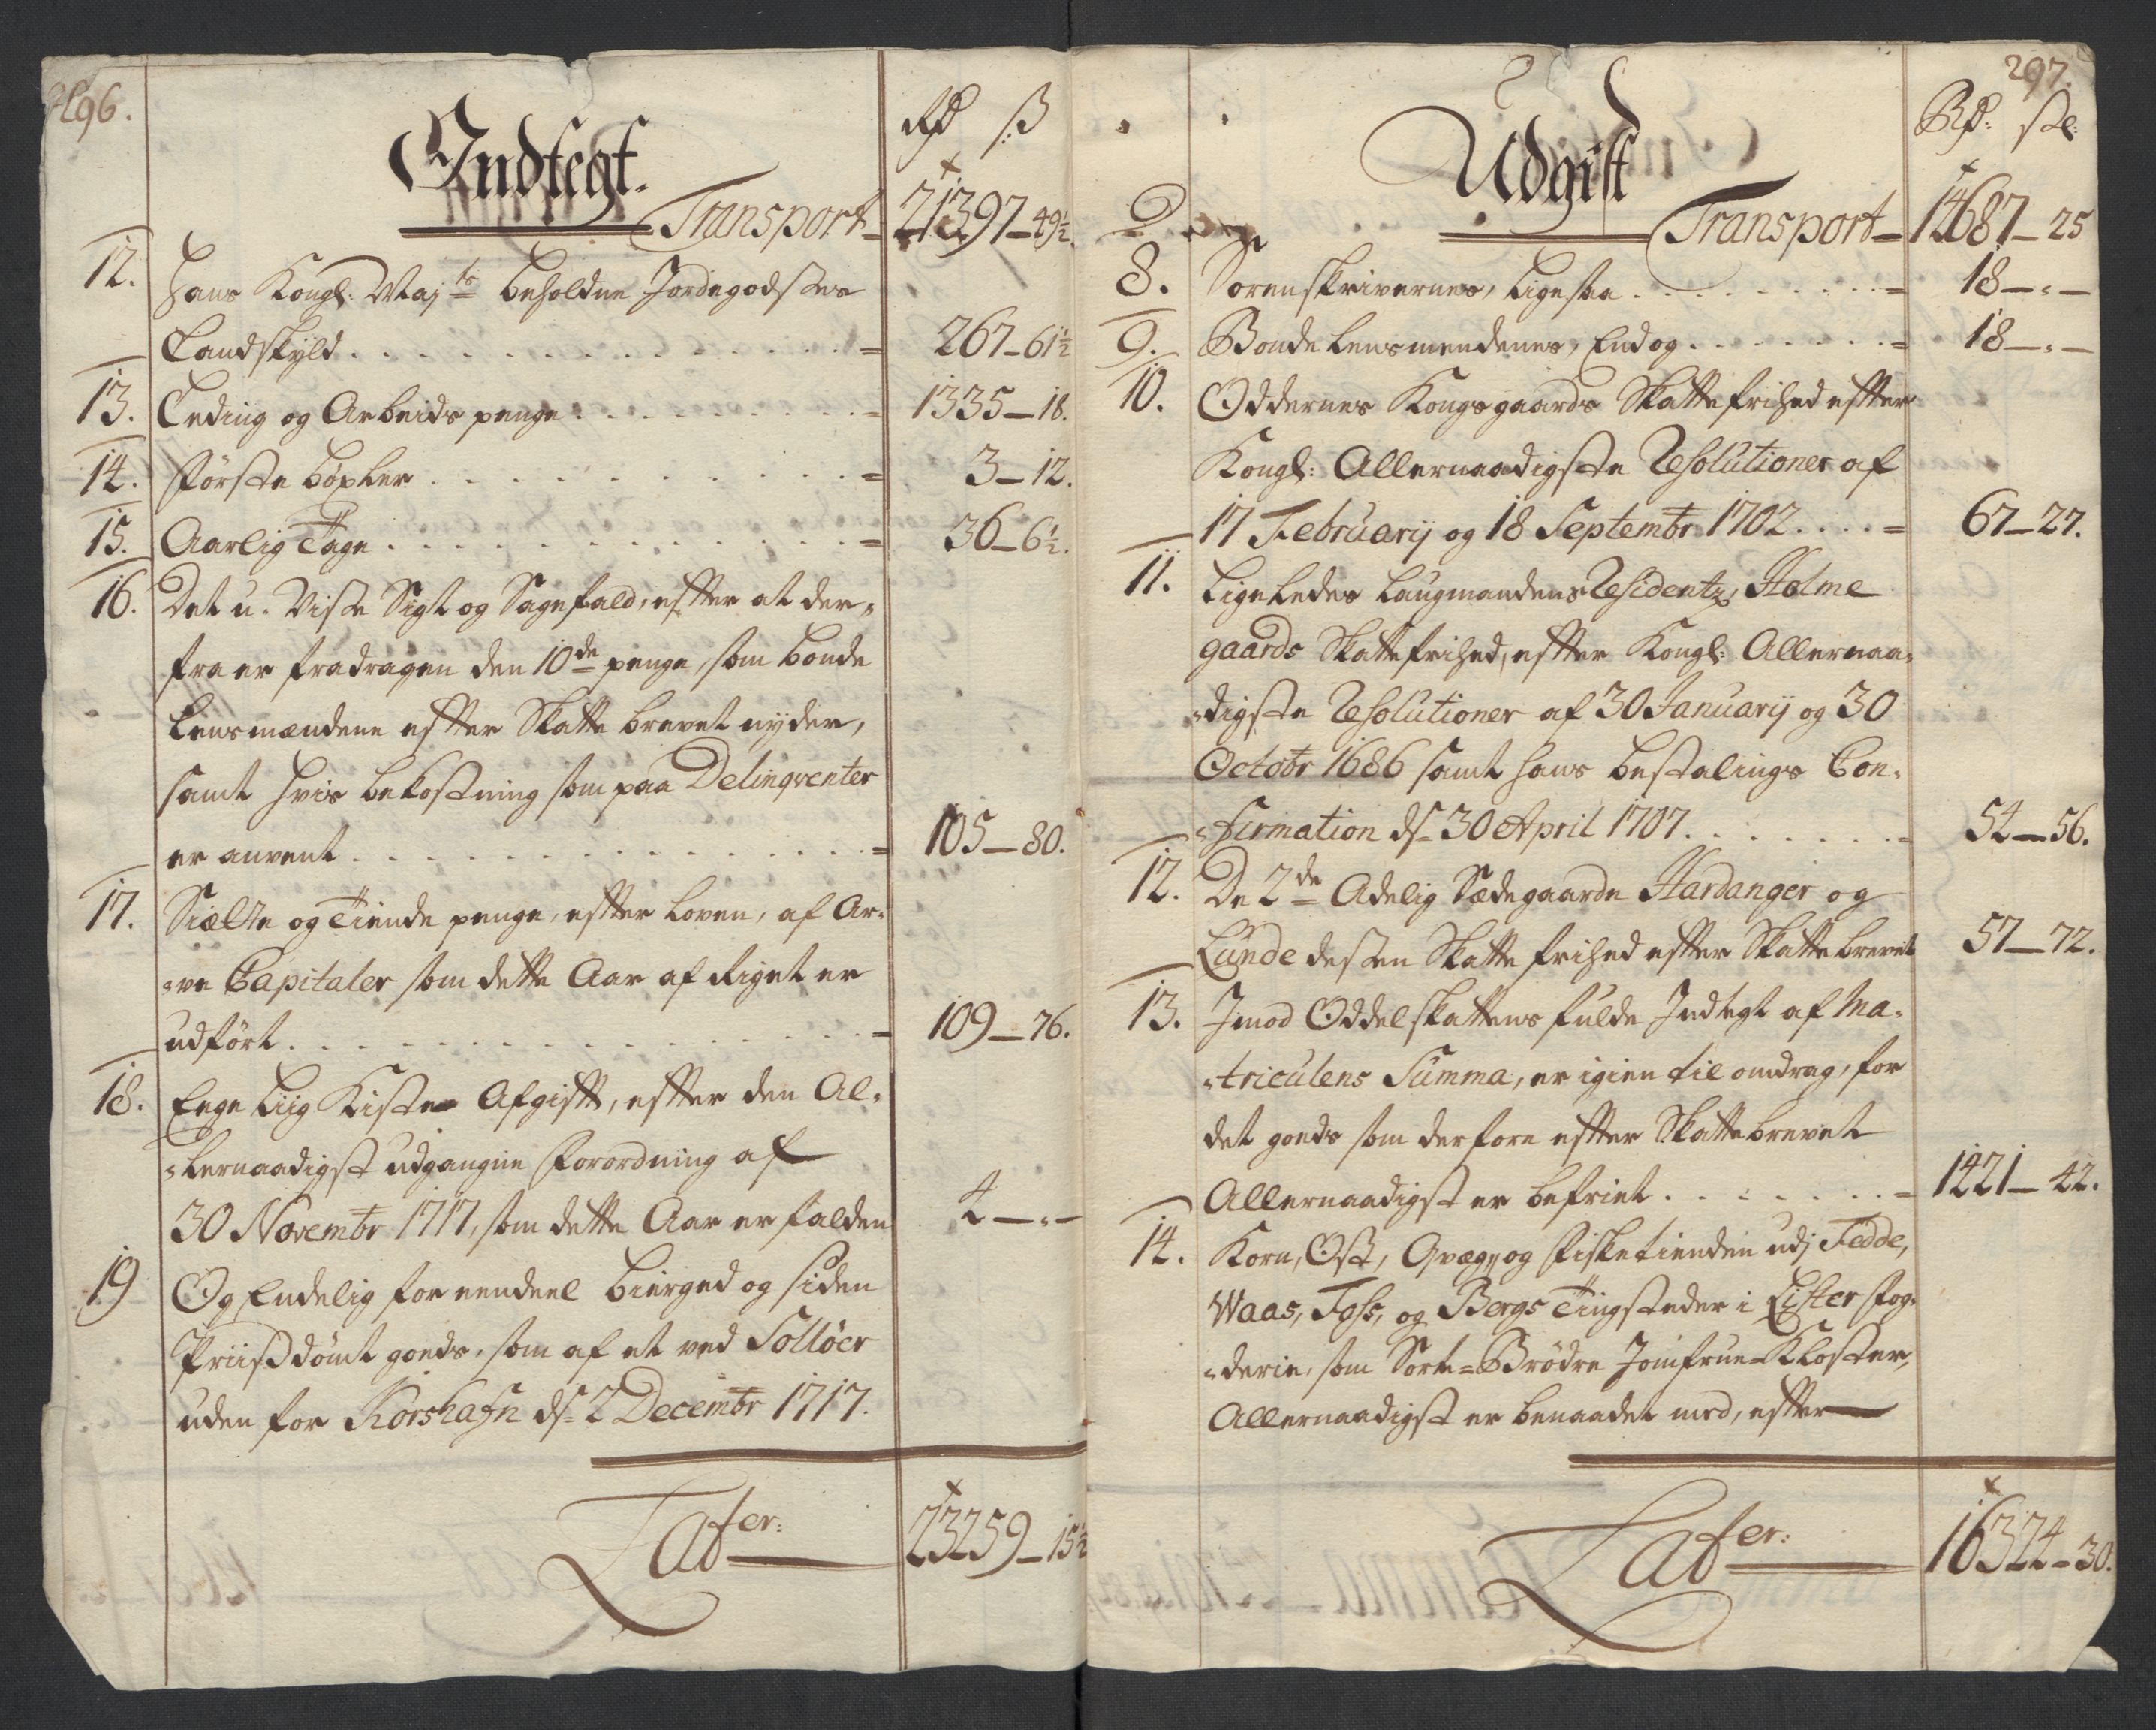 296.
Indtegt.
Rd ß
Transport 21397–49½.
12. Hans Kongl: Maj:ts beholdne Jordegodses
Landskyld . . . = 267–61½
13. Leding og Arbeids penge . . . = 1335–18.
14. Förste böxler . . . = 3–12.
15. Aarlig Tage . . . = 36–6½.
16. Det u-visse Sigt og Sagefald, effter at der-
fra er fradragen den 10de penge, som bonde
Lensmændene effter Skatte brevet nyder,
samt hvis bekostning som paa Delinqventer
er anvent . . . = 105–80.
17. Siætte og Tiende penge, effter Loven, af Ar-
-ve Capitaler som dette Aar af Riget er
udfört . . . = 109–76.
18. Eege Liig Kister Afgifft, effter den Al-
-lernaadigst udgangne Forordning af
30 Novembr 1717, som dette Aar er falden 4–"–
19 Og Endelig for eendeel bierged og siden
Priisdömt goeds, som af et ved Sollöer
uden for Korshafn ds 2 Decembr 1717.
Later: 23259–15½
297.
Udgift
Rd: sk:
Transport 14687–25
8. Sorenskrivernes, ligesaa . . . = 18–"–
9. Bonde Lensmendenes, Endog . . . = 18–"–
10. Oddernes Kongsgaards Skattefrihed effter
Kongl: Allernaadigste Resolutioner af
17 Februarij og 18 Septembr 1702 . . . = 67–27.
11. Ligeledes Laugmandens Residentz, Holme
gaards Skattefrihed, effter Kongl: Allernaa-
-digste Resolutioner af 30 Januarij og 30
Octobr 1686 samt hans bestalings Con-
-firmation ds 30 April 1707 . . . = 54–56.
12. De 2de Adelig Sædegaarde Hardanger og
Lunde dessen Skatte frihed effter Skattebrevet 57–72.
13. Imod Oddelskattens fulde Indtegt af Ma-
-triculens Summa, er igien til omdrag, for
det goeds som derfore effter Skattebrevet
Allernaadigst er befriet . . . = 1421–42.
14. Korn, Ost, Qvæg, og Fisketienden udj Fedde,
Waas, Foss, og Bergs Tingsteder i Lister Fog-
-derie, som Sorte-Brödre Jomfrue-Kloster,
Allernaadigst er benaadet med, effter
Later: 16324–30.